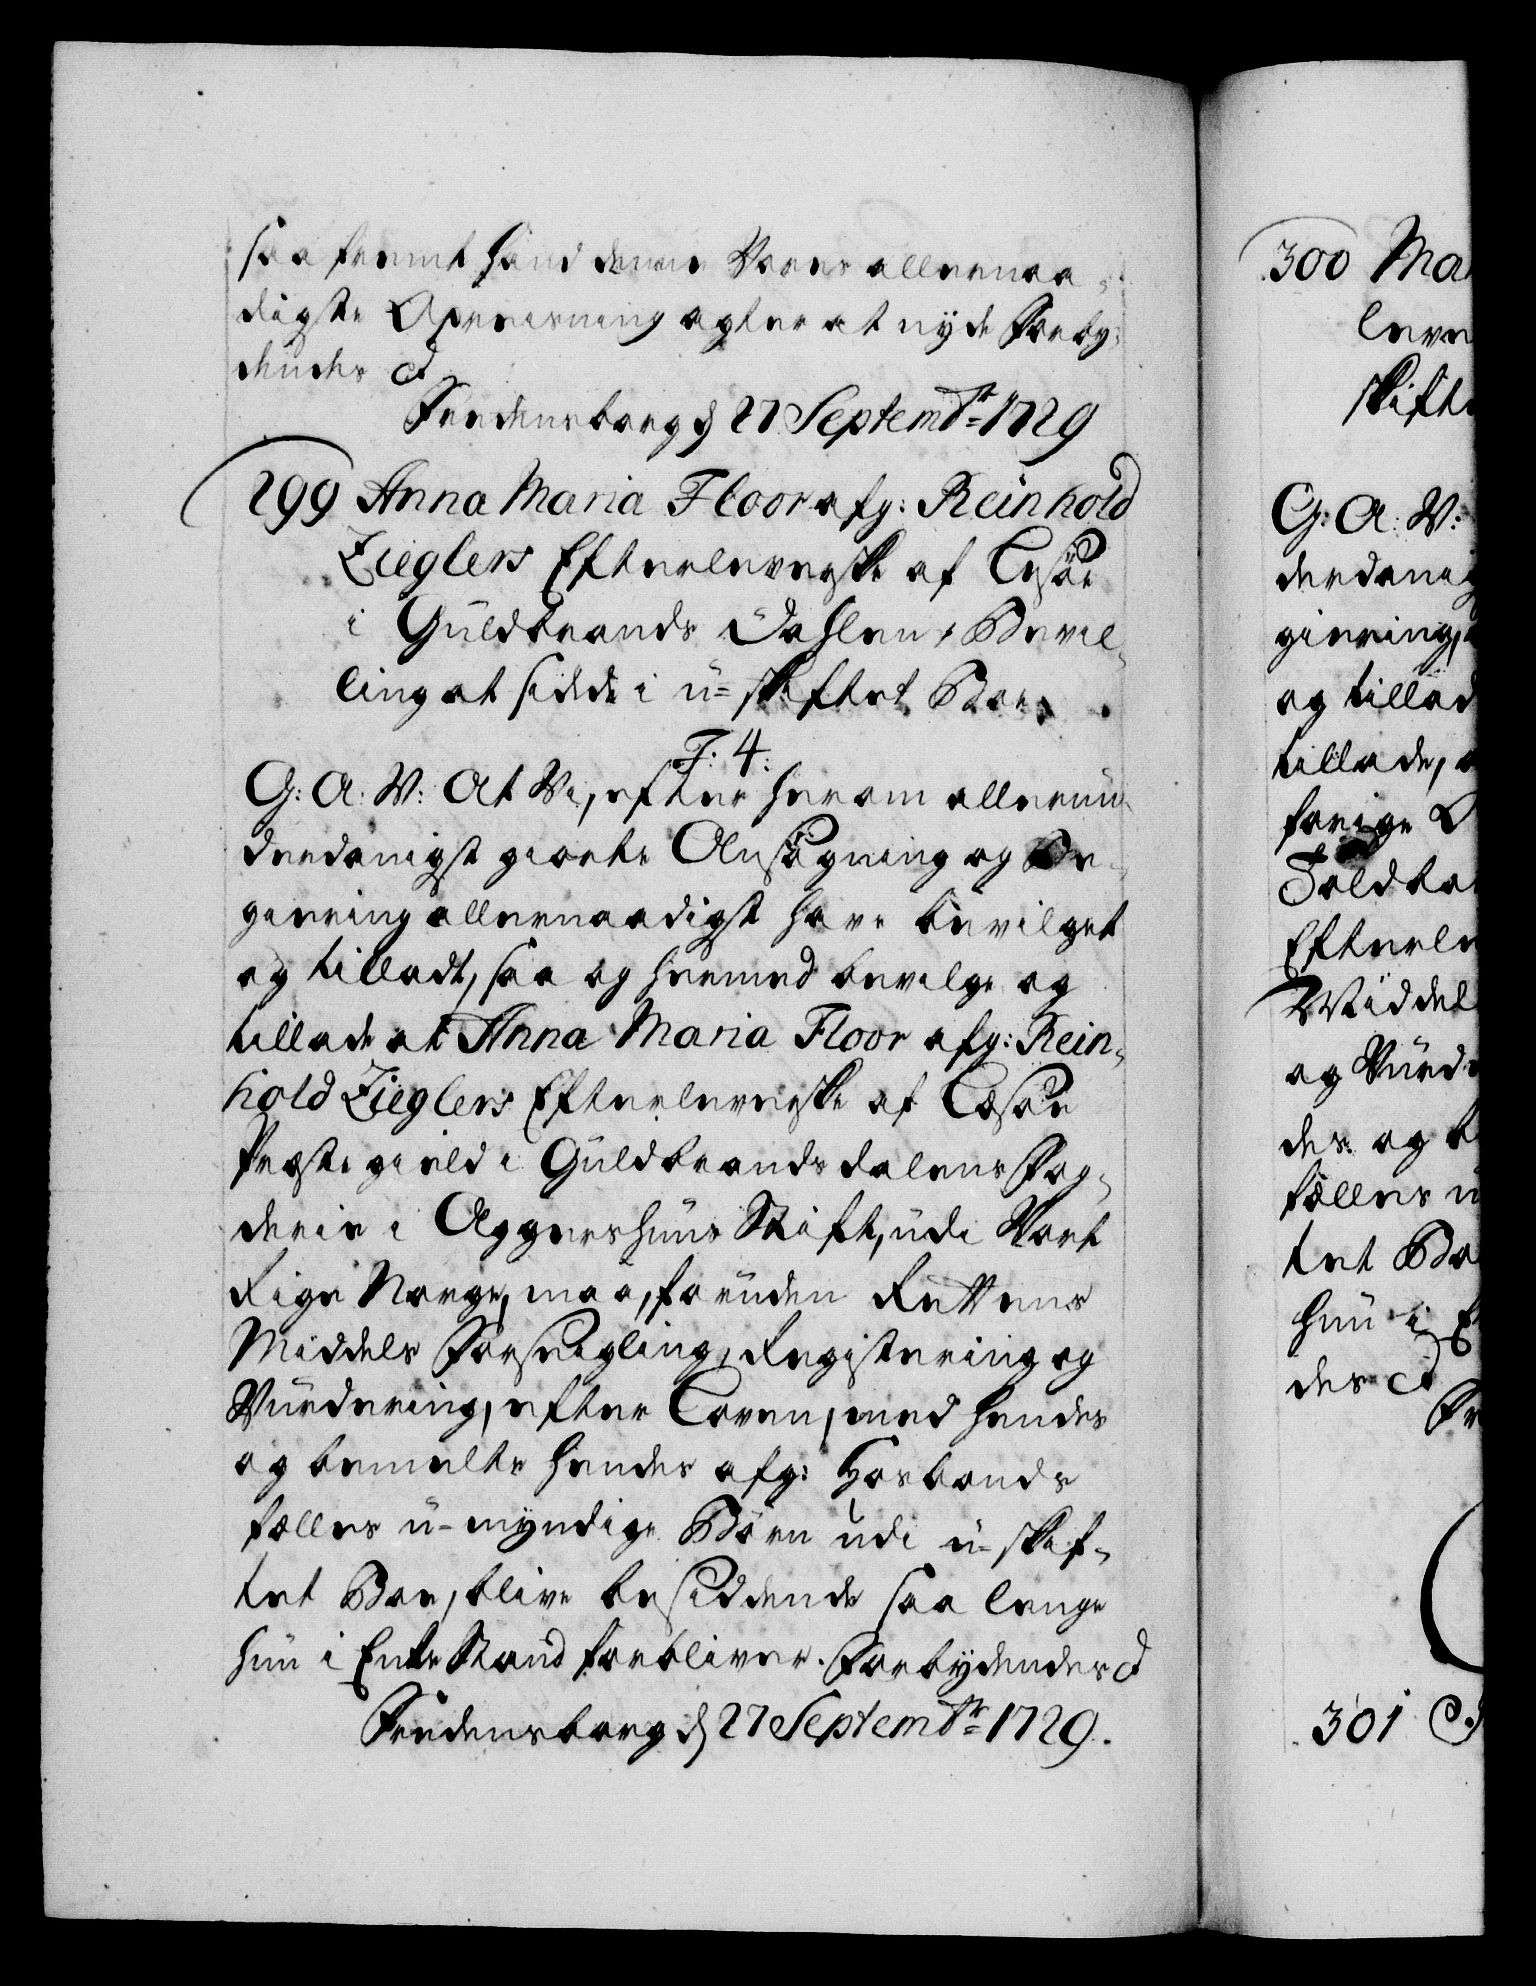 saa fremt hand denne Vores allernaa-
digste Opreisning agter at nyde Forby-
dendes &c
Fredensborg d 27 Septembr 1729
299 Anna Maria Floor afg: Reinhold
Zieglers Efterleverske af Lesöe
i Guldbrands Dahlen, Bevil-
ling at sidde i u-skiftet Boe.
F: 4:
G: A: W: At Vi, efter herom allerun-
derdanigst giorte Ansøgning og Be-
giering allernaadigst have bevilget
og tilladt, saa og hermed bevilge og
tillade at Anna Maria Floor afg: Rein-
hold Zieglers Efterleverske af Lesøe
Præstegield i Guldbrandsdalens Fog-
derie i Aggershuus Stift, udi Vort
Rige Norge, maa, foruden Rettens
Middels Forseigling, Registering og
Vurdering, efter Loven, med hendes
og bemelte hendes afg: Hosbonds
fælles u-myndige Børn udi u-skif-
tet Boe, blive besiddende saa lenge
hun i Enke Stand forbliver. Forbydendes &c
Fredensborg d 27 Septembr 1729.
300 Ma
leve
skifte
G: A: W:
derdanig
giering,
og tillad
tillade, a
forige
Toldbo
Efterle
Middel
og Vurde
des og b
fælles u
tet Bo
hun i E
des &c
Fr
301